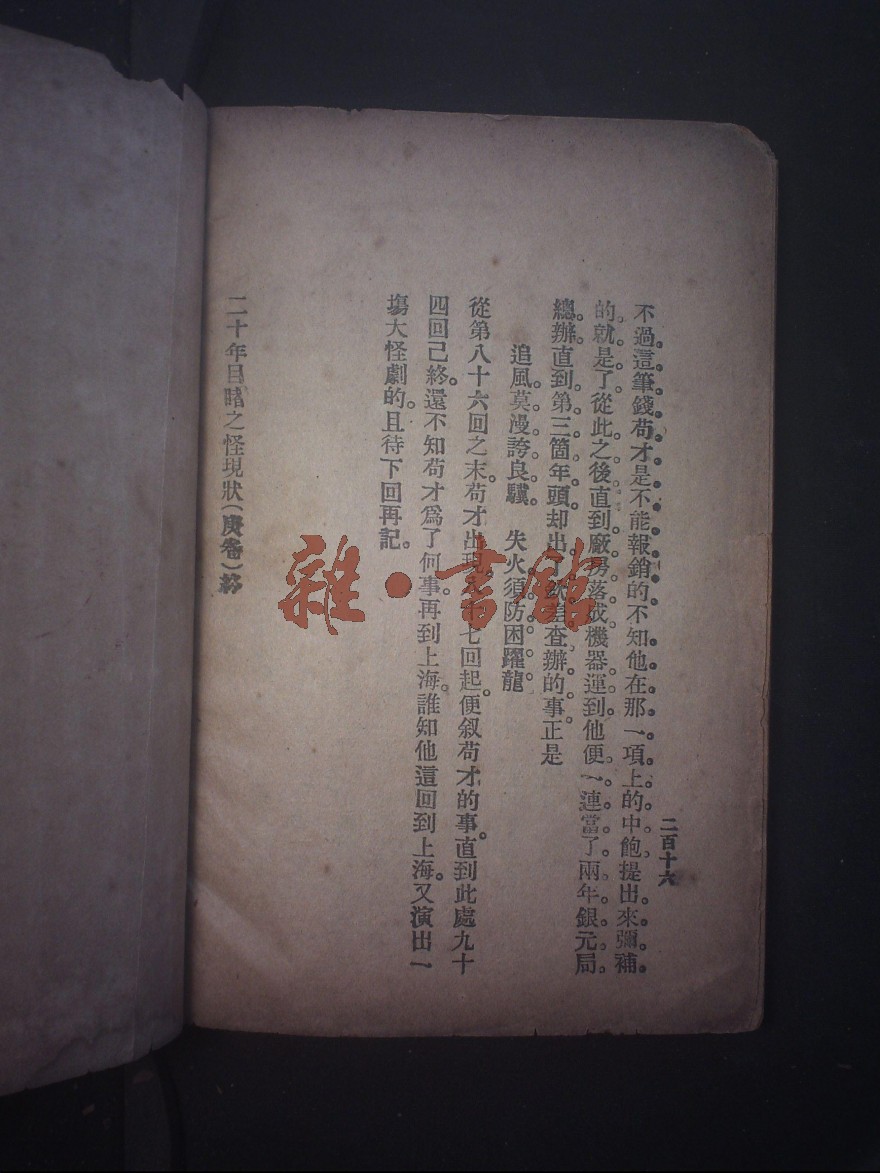 二百十六
不過這筆錢苟才是不能報銷的不知他在那一項上的中飽提出來彌補
的就是了從此之後直到廠房落成機器運到他便一連當了兩年銀元局
總辦直到第三箇年頭却出了欽差查辦的事正是
追風莫漫誇良驥 失火須防困躍龍
從第八十六回之末。苟才出現。八十七回起。便叙苟才的事。直到此處九十
四回已終。還不知苟才爲了何事。再到上海。誰知他這回到上海。又演出一
塲大怪劇的。且待下回再記。
二十年目睹之怪現狀(庚卷)終
雜·書館